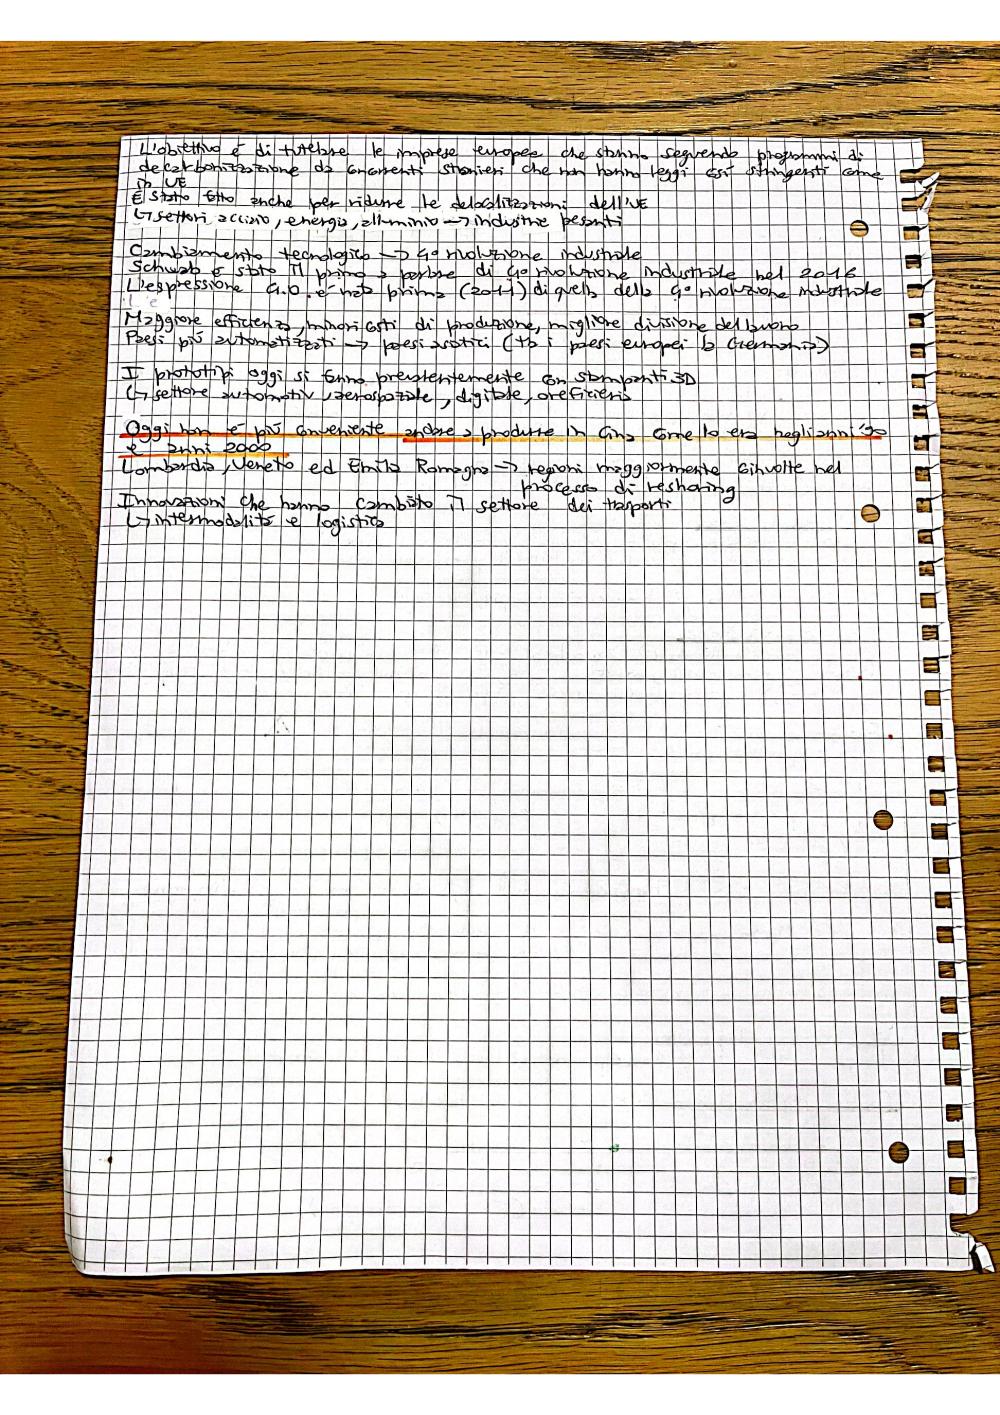 L'obiettivo è di tutelare le imprese europee che stanno seguendo programmi di
decarbonizzazione da concorrenti stranieri che non hanno leggi così stringenti come
in UE
È stato fatto anche per ridurre le delocalizzazioni dell'UE
↳ settori, acciaio, energia, alluminio → industrie pesanti
Cambiamento tecnologico → 4° rivoluzione industriale
Schwab è stato il primo a parlare di 4° rivoluzione industriale nel 2016
L'espressione 4.0 è nata prima (2011) di quella della 4° rivoluzione industriale
L'e
Maggiore efficienza, minori costi di produzione, migliore divisione del lavoro
Paesi più automatizzati → paesi asiatici (tra i paesi europei la Germania)
I prototipi oggi si fanno prevalentemente con stampanti 3D
↳ settore automotiv, aerospaziale, digitale, oreficieria
Oggi non è più conveniente andare a produrre in Cina come lo era negli anni '90
e anni 2000
Lombardia, Veneto ed Emilia Romagna → regioni maggiormente coinvolte nel
processo di reshoring
Innovazioni che hanno cambiato il settore dei trasporti
↳ intermodalità e logistica